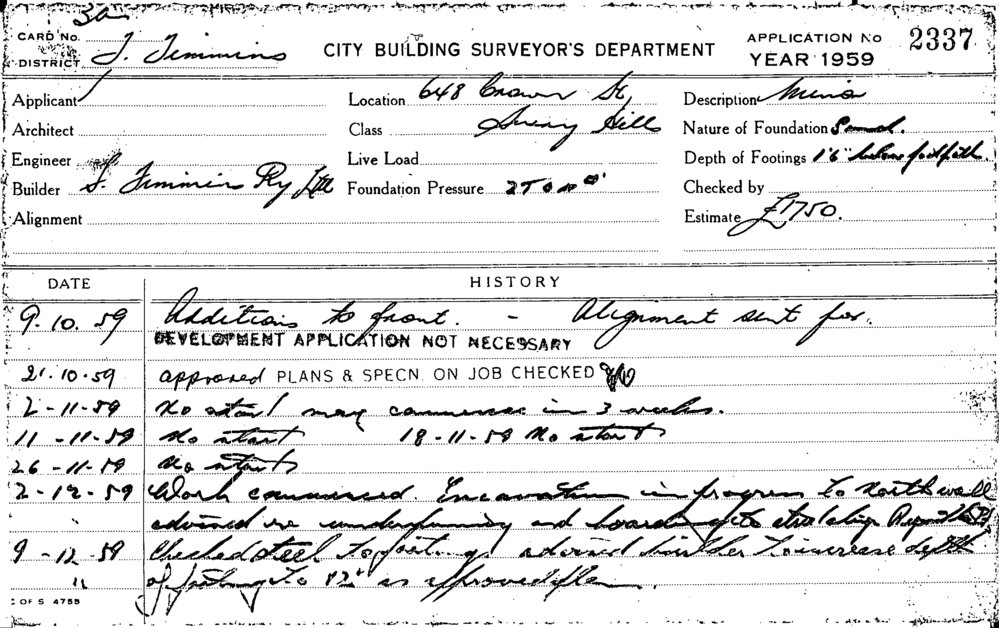 CARD No. 3a
DISTRICT J. Timmins
CITY BUILDING SURVEYOR'S DEPARTMENT
APPLICATION No 2337
YEAR 1959
Applicant
Location 648 Crown St,
Description Minor
Architect
Class Surry Hills
Nature of Foundation Sand.
Engineer
Live Load
Depth of Footings 1'6" below footpath
Builder S. Timmins Pty Ltd
Foundation Pressure 2 Ton
Checked by
Alignment
Estimate £1750.
DATE HISTORY
9.10.59 Additions to front. - Alignment sent for.
DEVELOPMENT APPLICATION NOT NECESSARY
21.10.59 approved PLANS & SPECN. ON JOB CHECKED
2-11-59 No start may commence in 3 weeks.
11-11-59 No start 18-11-59 No start
26-11-59 No start
2-12-59 Work commenced. Excavation in progress to North wall
" advised re underpinning and
9-12-59 Checked steel to footings advised builder to increase depth
" of footing to 12" as approved plan.
C OF S 4755